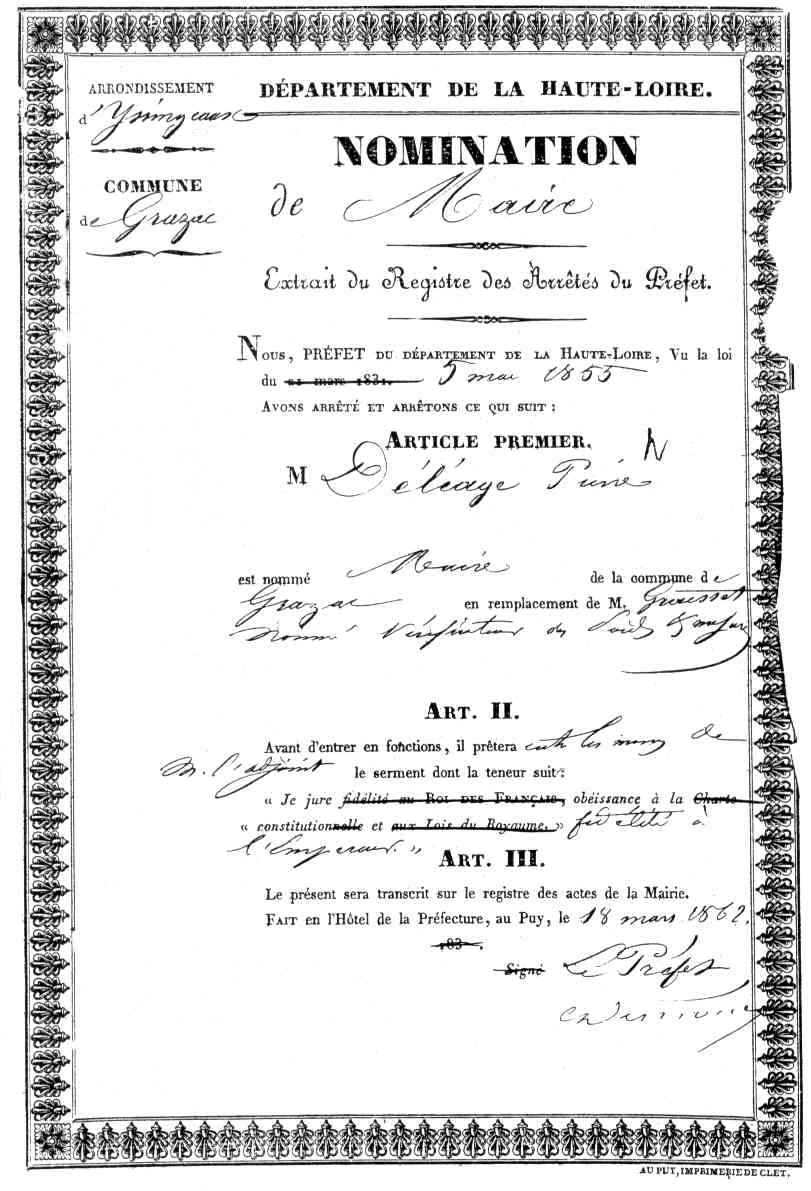 ARRONDISSEMENT
d'Yssingeaux
COMMUNE
de Grazac
DÉPARTEMENT DE LA HAUTE-LOIRE.
NOMINATION
de Maire
Extrait du Registre des Arrêtés du Préfet.
NOUS, PRÉFET DU DÉPARTEMENT DE LA HAUTE-LOIRE, Vu la loi
du 21 mars 1831. 5 mai 1855
AVONS ARRÊTÉ ET ARRÊTONS CE QUI SUIT :
ARTICLE PREMIER.
M Déléage Pierre
est nommé Maire de la commune de
Grazac en remplacement de M. Grousset
nommé Vérificateur des Poids & mesures
ART. II.
Avant d'entrer en fonctions, il prêtera entre les mains de
M. l'adjoint le serment dont la teneur suit :
« Je jure fidélité au ROI DES FRANÇAIS, obéissance à la Charte
« constitutionnelle et aux Lois du Royaume. » fidélité à
l'Empereur. »
ART. III.
Le présent sera transcrit sur le registre des actes de la Mairie.
FAIT en l'Hôtel de la Préfecture, au Puy, le 18 mars 1862.
183 .
Signé Le Préfet
AU PUY, IMPRIMERIE DE CLET.